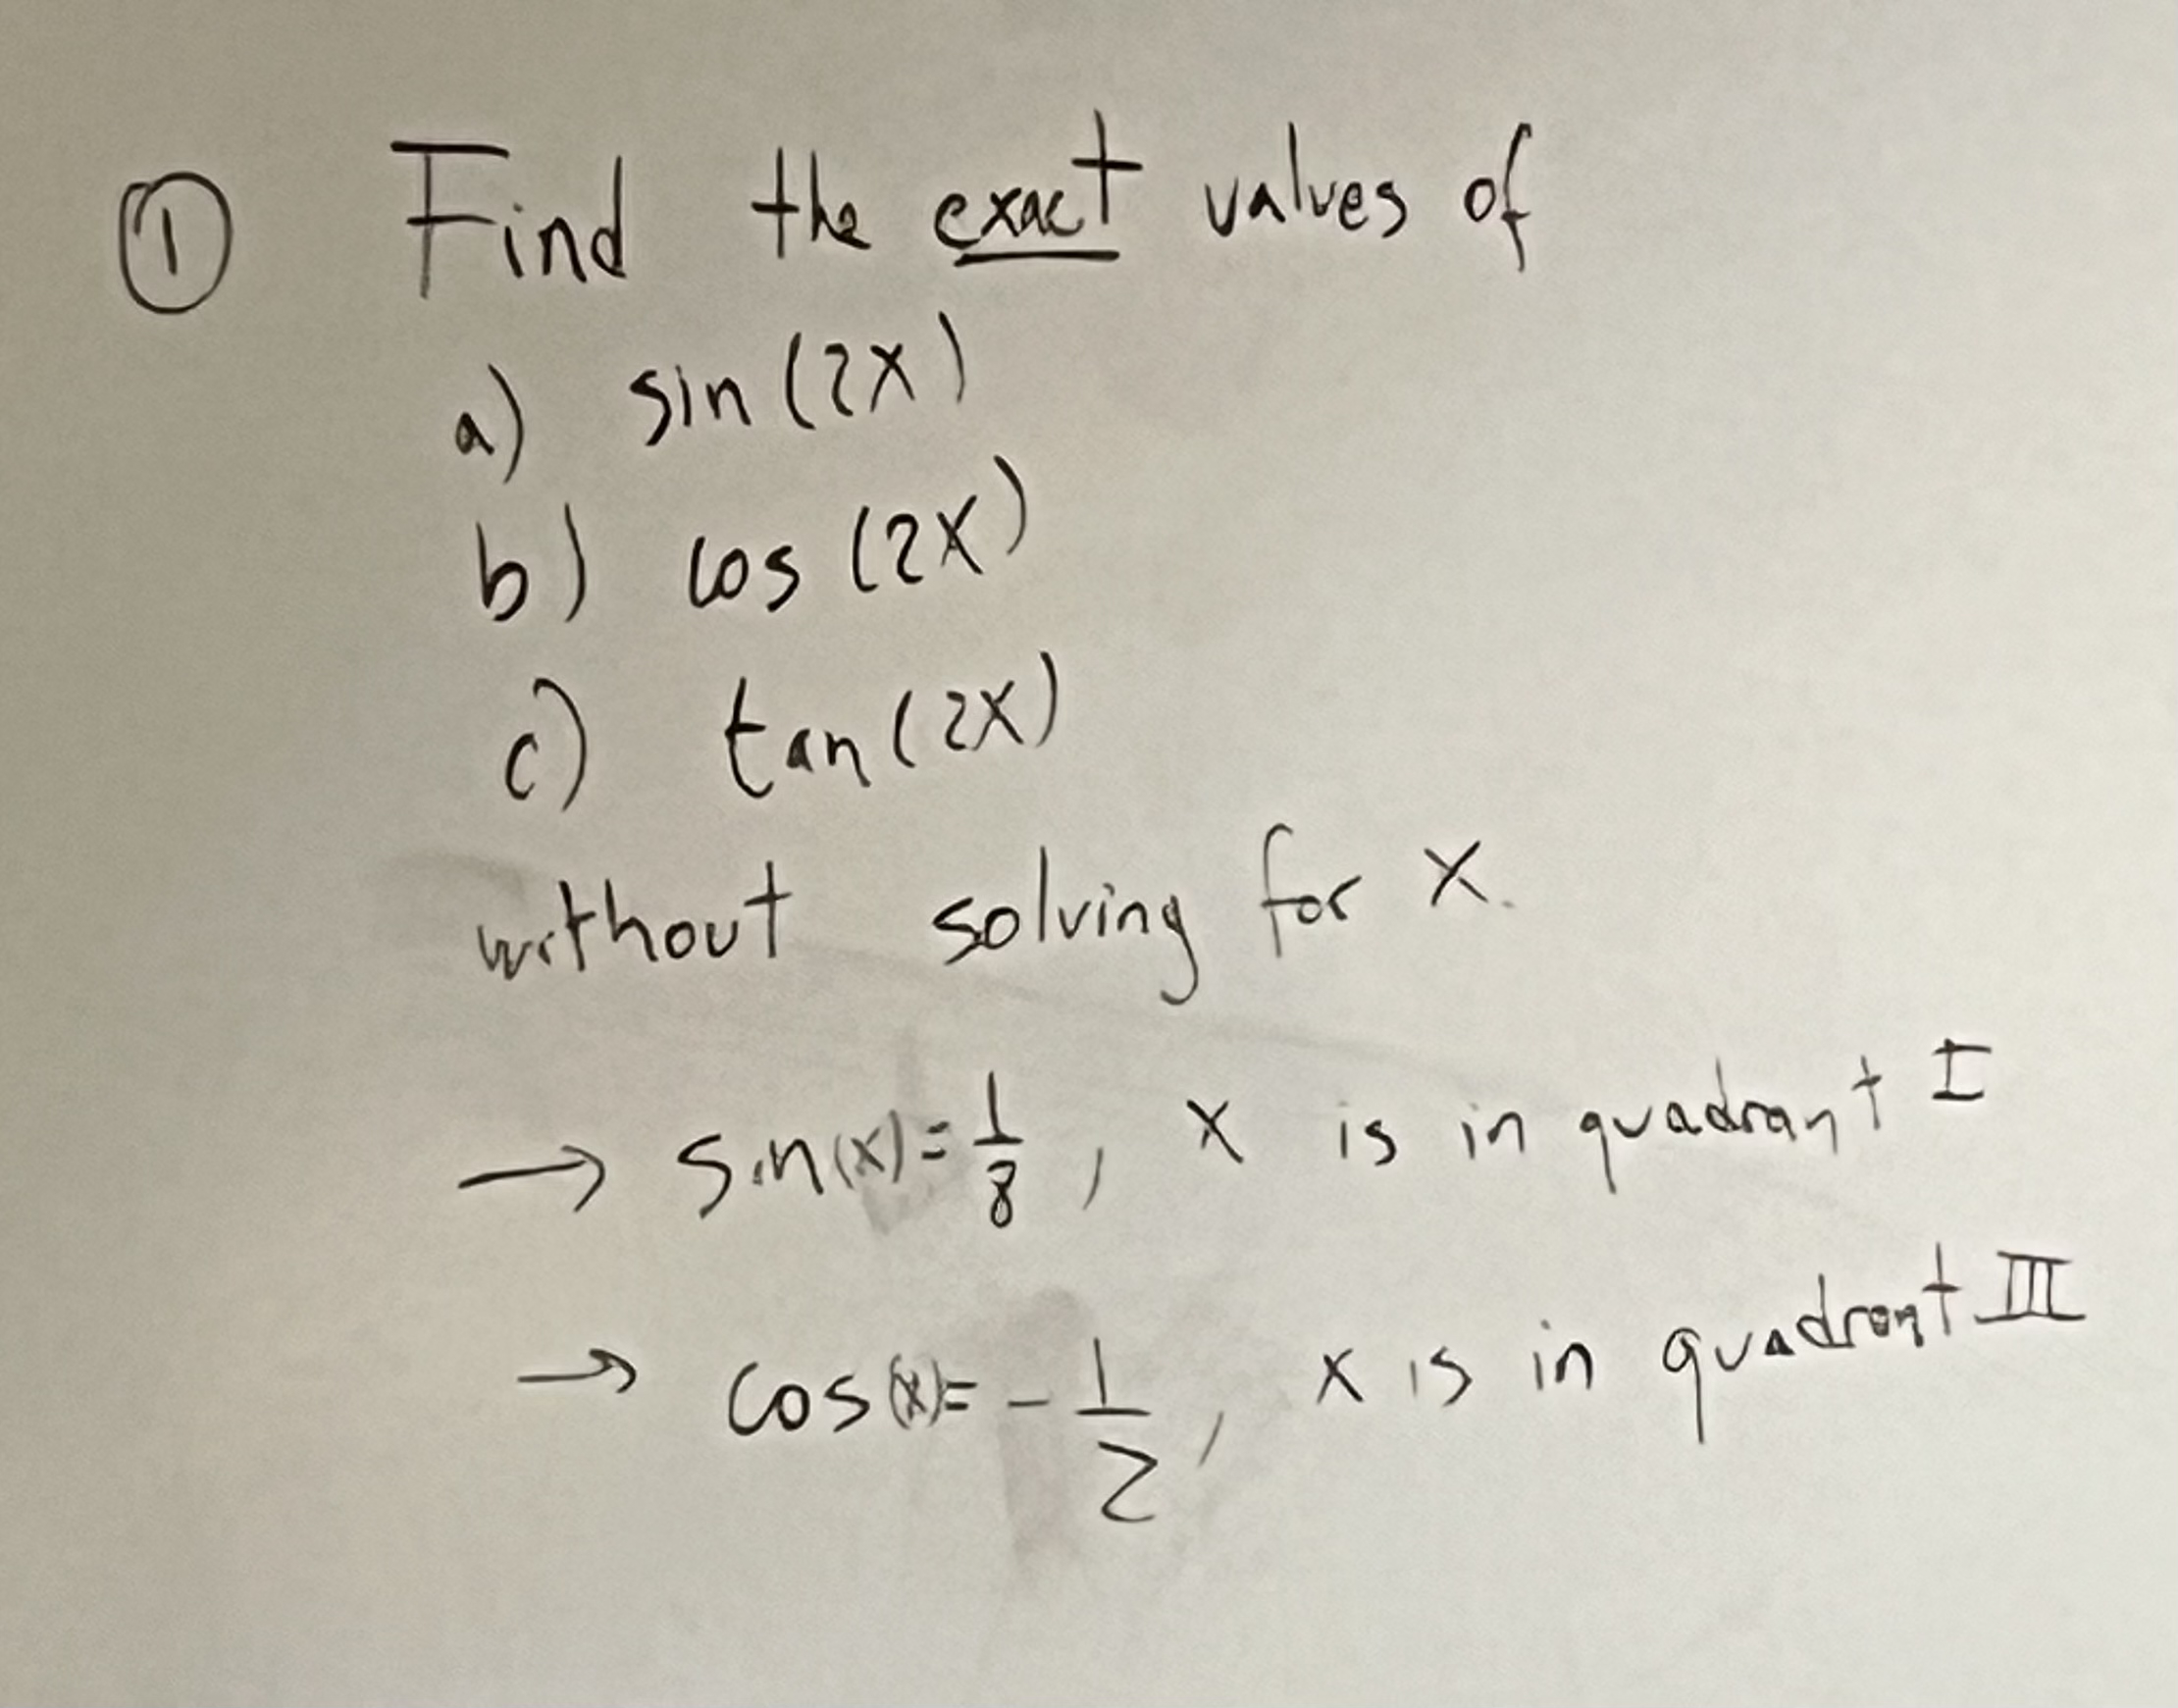 ① Find the exact values of
a) sin(2x)
b) cos(2x)
c) tan(2x)
without solving for x.
→ sin(x) = 1/8, x is in quadrant I
→ cos(x) = -1/2, x is in quadrant III